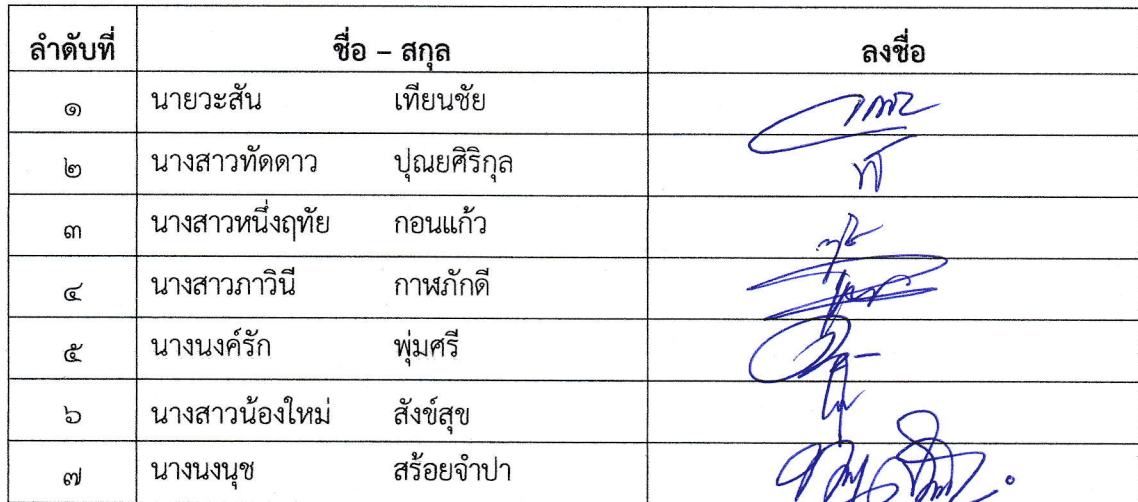 ลำดับที่ ชื่อ – สกุล ลงชื่อ
๑ นายวะสัน เทียนชัย
๒ นางสาวทัดดาว ปุณยศิริกุล
๓ นางสาวหนึ่งฤทัย กอนแก้ว
๔ นางสาวภาวินี กาฬภักดี
๕ นางนงค์รัก พุ่มศรี
๖ นางสาวน้องใหม่ สังข์สุข
๗ นางนงนุช สร้อยจำปา